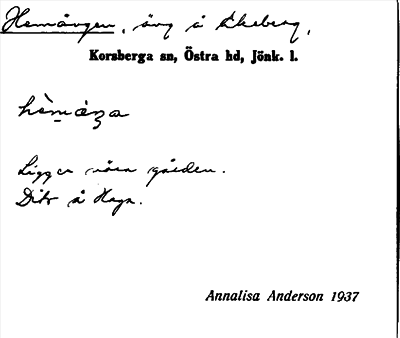 Hemängen, äng å Ekeberg,
Korsberga sn, Östra hd, Jönk. l.
Ligger nära gården.
Dito å Haga.
Annalisa Anderson 1937